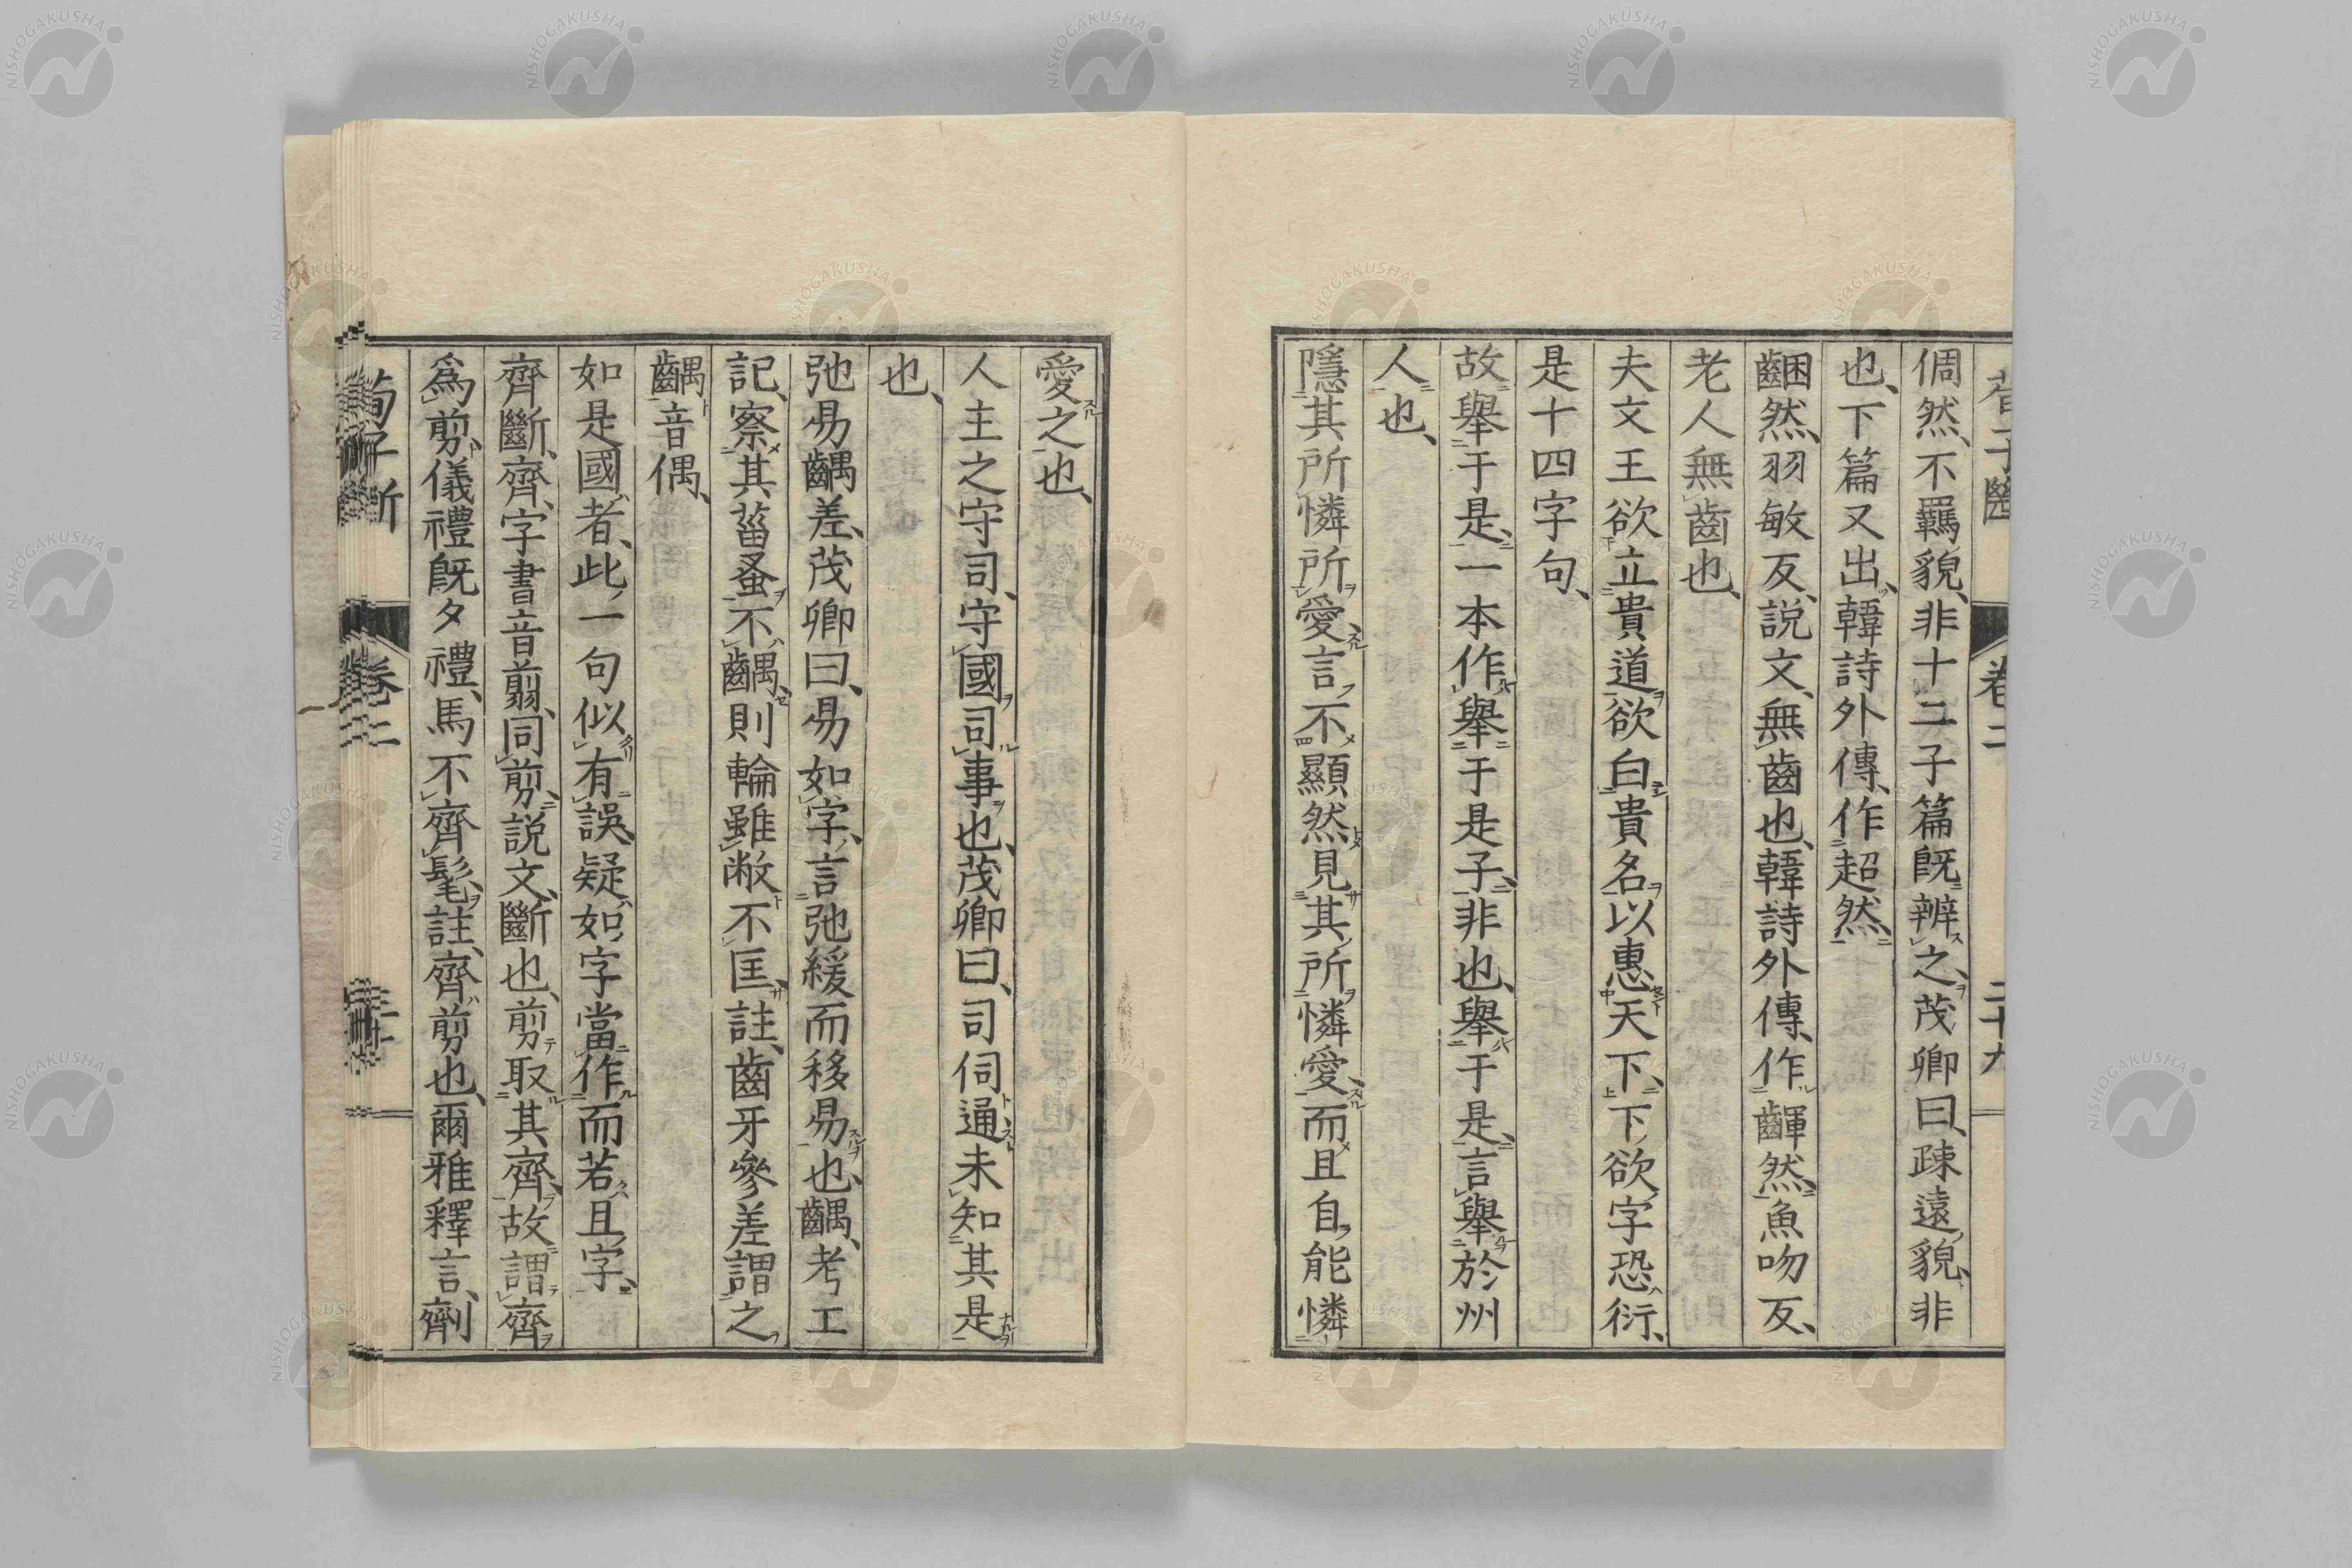 荀子斷 卷二 二十九
倜然、不羈貌、非十二子篇既辨之、茂卿曰、疎遠貌、非
也、下篇又出、韓詩外傳、作超然、
齫然、羽敏反、說文、無齒也、韓詩外傳、作齳然、魚吻反、
老人無齒也、
夫文王欲立貴道欲白貴名以惠天下、下欲字恐衍、
是十四字句、
故舉于是、一本作舉于是子、非也、舉于是、言舉於州
人也、
隱其所憐所愛、言不顯然見其所憐愛、而且自能憐
愛之也、
人主之守司、守國司事也、茂卿曰、司伺通未知其是
也、
弛易齵差、茂卿曰、易如字、言弛緩而移易也、齵、考工
記、察其菑蚤不齵、則輪雖敝不匡、註、齒牙參差謂之
齵音偶、
如是國者、此一句似有誤、疑如字當作而若且字、
齊斷、齊、字書音翦、同剪、說文、斷也、剪取其齊、故謂齊
爲剪、儀禮既夕禮、馬不齊髦、註、齊剪也、爾雅釋言、劑
荀子斷 卷二 三十
NISHOGAKUSHA